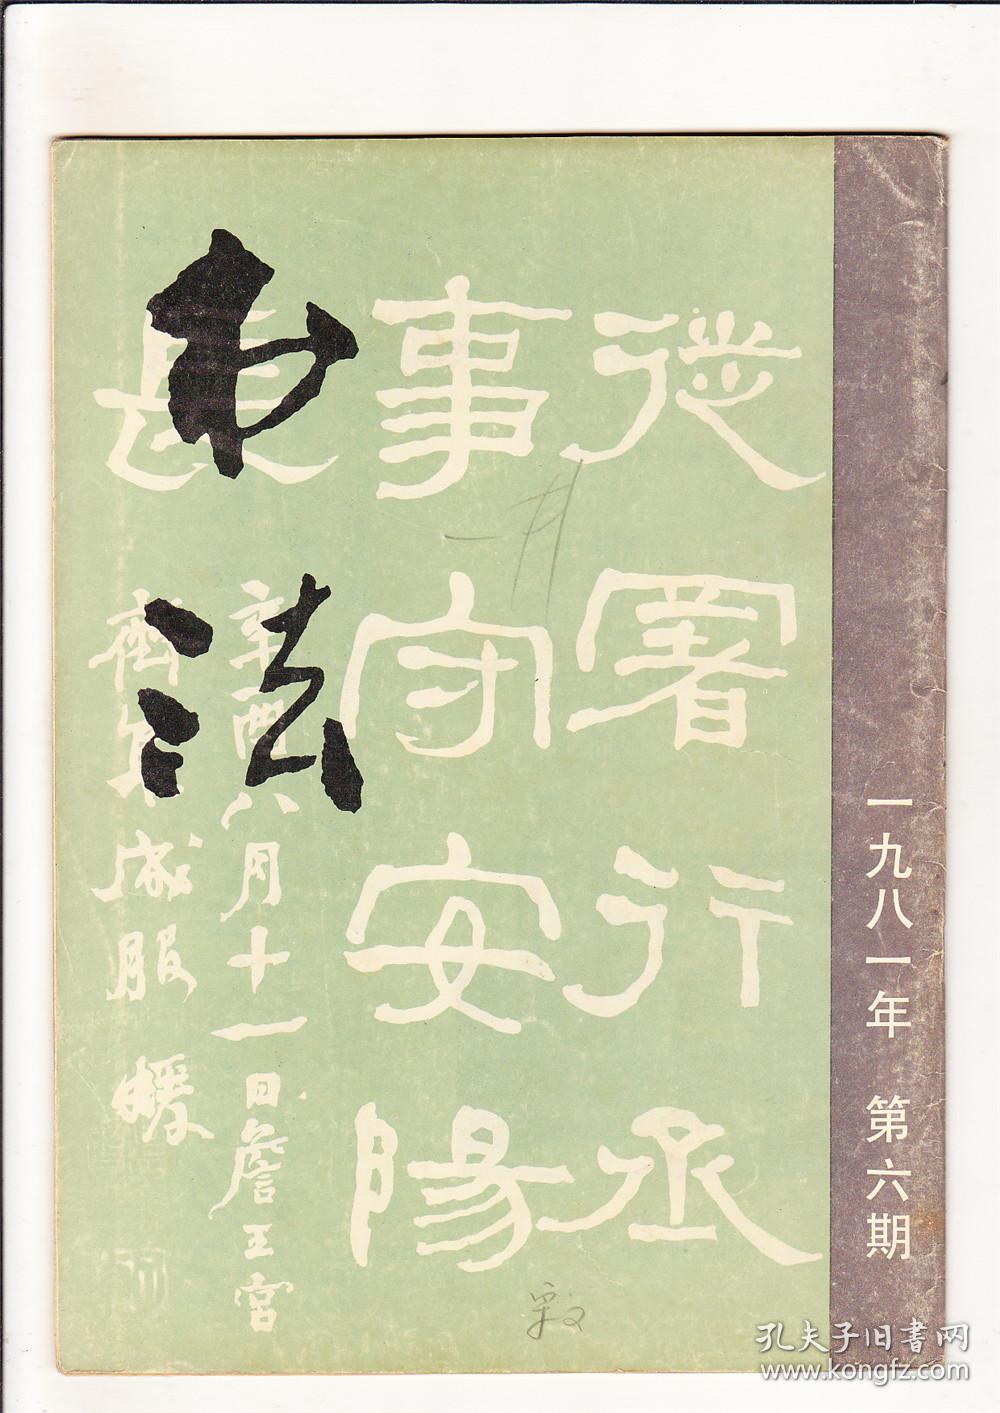 书法
從署行丞
事守安陽
長
辛酉八月十一日詹王宮
一九八一年 第六期
孔夫子旧書网
www.kongfz.com